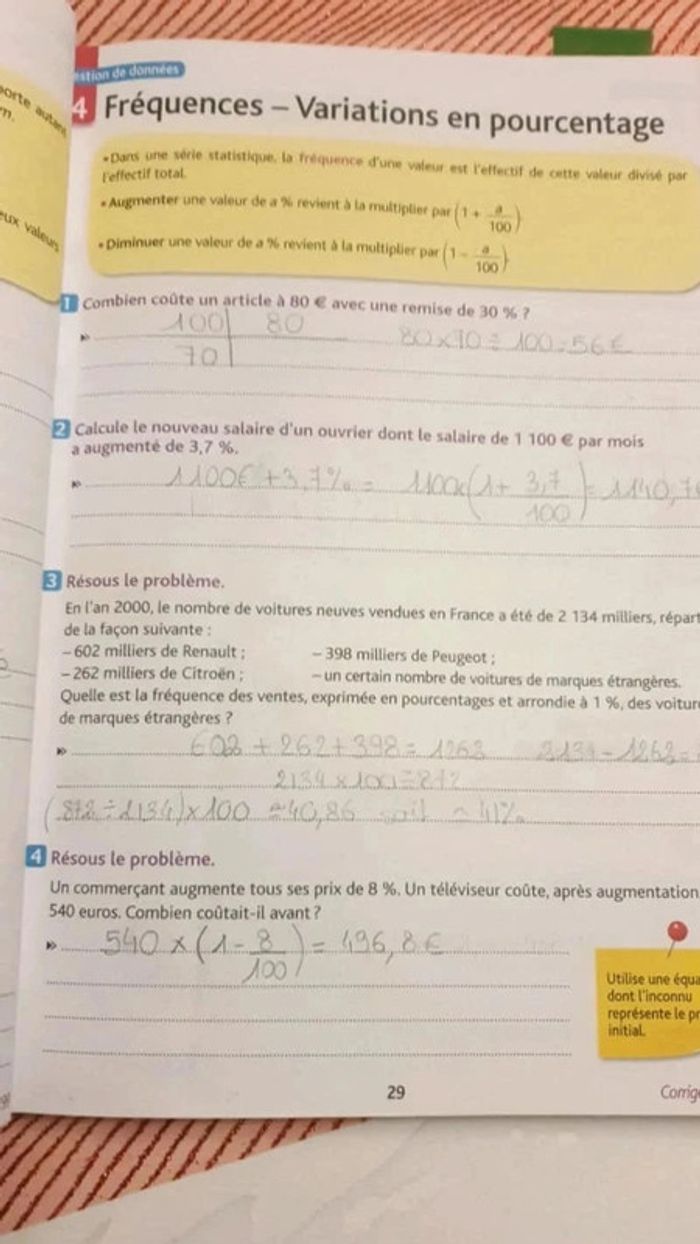 porte autant
m.
eux valeurs
stion de données
4 Fréquences – Variations en pourcentage
• Dans une série statistique, la fréquence d'une valeur est l'effectif de cette valeur divisé par
l'effectif total.
• Augmenter une valeur de a % revient à la multiplier par (1 + a/100)
• Diminuer une valeur de a % revient à la multiplier par (1 – a/100)
1 Combien coûte un article à 80 € avec une remise de 30 % ?
100 | 80
70 |
80 x 70 ÷ 100 = 56 €
2 Calcule le nouveau salaire d'un ouvrier dont le salaire de 1 100 € par mois
a augmenté de 3,7 %.
1100€ + 3,7% = 1100x(1 + 3,7/100) = 1140,7
3 Résous le problème.
En l'an 2000, le nombre de voitures neuves vendues en France a été de 2 134 milliers, répart
de la façon suivante :
– 602 milliers de Renault ;
– 398 milliers de Peugeot ;
– 262 milliers de Citroën ;
– un certain nombre de voitures de marques étrangères.
Quelle est la fréquence des ventes, exprimée en pourcentages et arrondie à 1 %, des voiture
de marques étrangères ?
602 + 262 + 398 = 1262 2134 - 1262 =
2134 x 100 = 872
(872 ÷ 2134) x 100 = 40,86 soit ~ 41%
4 Résous le problème.
Un commerçant augmente tous ses prix de 8 %. Un téléviseur coûte, après augmentation
540 euros. Combien coûtait-il avant ?
540 x (1 - 8/100) = 496,8€
Utilise une équa
dont l'inconnu
représente le pr
initial.
29
Corrigé